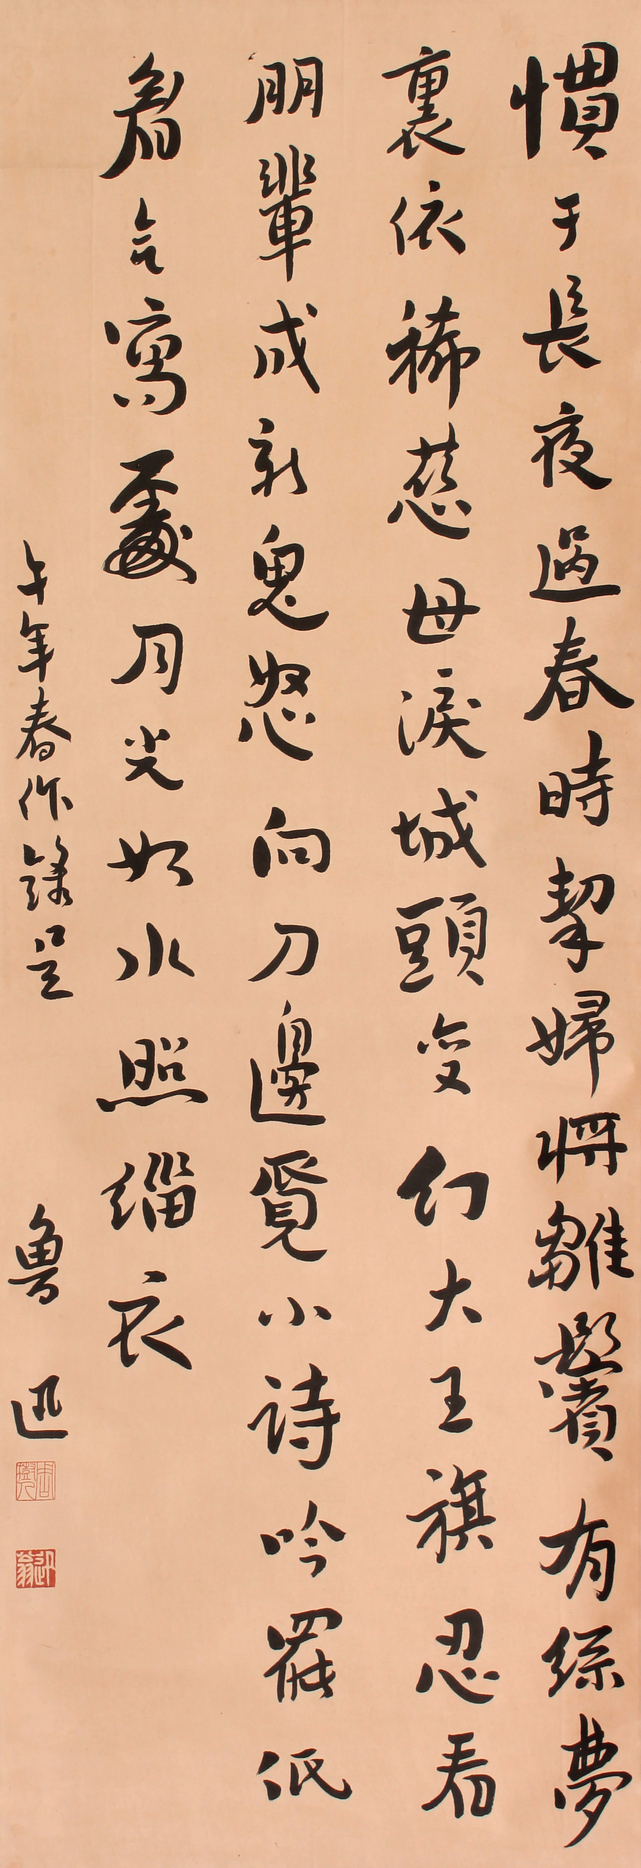 慣于長夜過春時挈婦將雛鬢有絲夢
裏依稀慈母淚城頭变幻大王旗忍看
朋輩成新鬼怒向刀邊覓小詩吟罷低
眉寫處月光如水照緇衣
午年春作錄呈
魯迅
迅翁